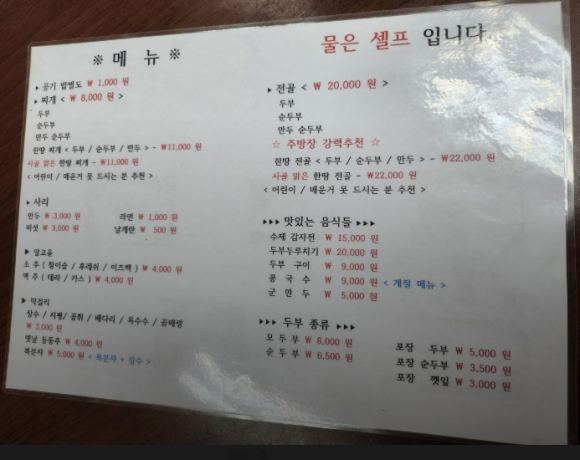 ※ 메 뉴 ※
▸ 공기 밥별도 ₩ 1,000 원
▸ 찌개 < ₩ 8,000 원 >
두부
순두부
만두 순두부
한방 찌개 < 두부 / 순두부 / 만두 > - ₩11,000 원
사골 맑은 한방 찌개 - ₩11,000 원
< 어린이 / 매운거 못 드시는 분 추천 >
▸ 사리
만두 ₩ 3,000 원 라면 ₩ 1,000 원
버섯 ₩ 3,000 원 날계란 ₩ 500 원
▸ 알코올
소 주 ( 참이슬 / 후레쉬 / 이즈백 ) ₩ 4,000 원
맥 주 ( 테라 / 카스 ) ₩ 4,000 원
▸ 막걸리
장수 / 지평/ / 배다리 / 옥수수 /
₩ 3,000 원
옛날 동동주 ₩ 4,000 원
복분자 ₩ 5,000 원 < 복분자 + 장수 >
물은 셀프 입니다
▸ 전골 < ₩ 20,000 원 >
두부
순두부
만두 순두부
☆ 주방장 강력추천 ☆
한방 전골 < 두부 / 순두부 / 만두 > - ₩22,000 원
사골 맑은 한방 전골 - ₩22,000 원
< 어린이 / 매운거 못 드시는 분 추천 >
▸▸▸ 맛있는 음식들 ▸▸▸
수제 감자전 ₩ 15,000 원
두부두루치기 ₩ 20,000 원
두부 구이 ₩ 9,000 원
콩 국 수 ₩ 9,000 원 < 계절 메뉴 >
군 만 두 ₩ 5,000 원
▸▸▸ 두부 종류 ▸▸▸
모 두 부 ₩ 8,000 원
순 두 부 ₩ 6,500 원
포장 두부 ₩ 5,000 원
포장 순두부 ₩ 3,500 원
포장 깻잎 ₩ 3,000 원